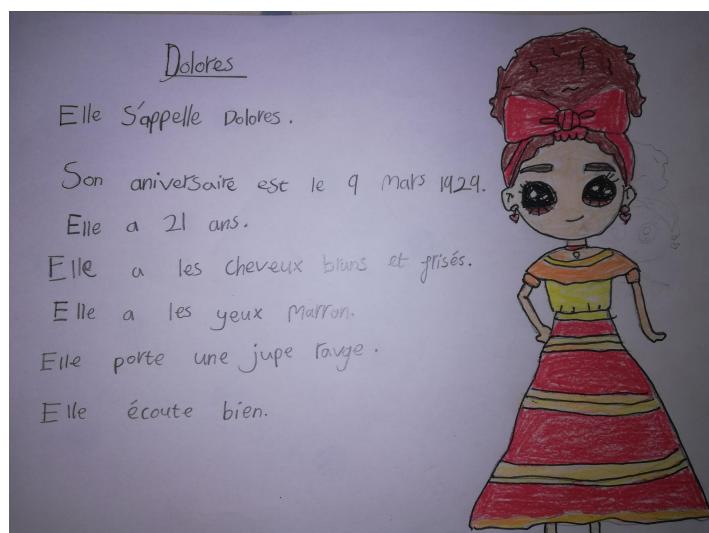 Dolores
Elle s'appelle Dolores.
Son aniversaire est le 9 mars 1929.
Elle a 21 ans.
Elle a les cheveux bruns et frisés.
Elle a les yeux marron.
Elle porte une jupe rouge.
Elle écoute bien.